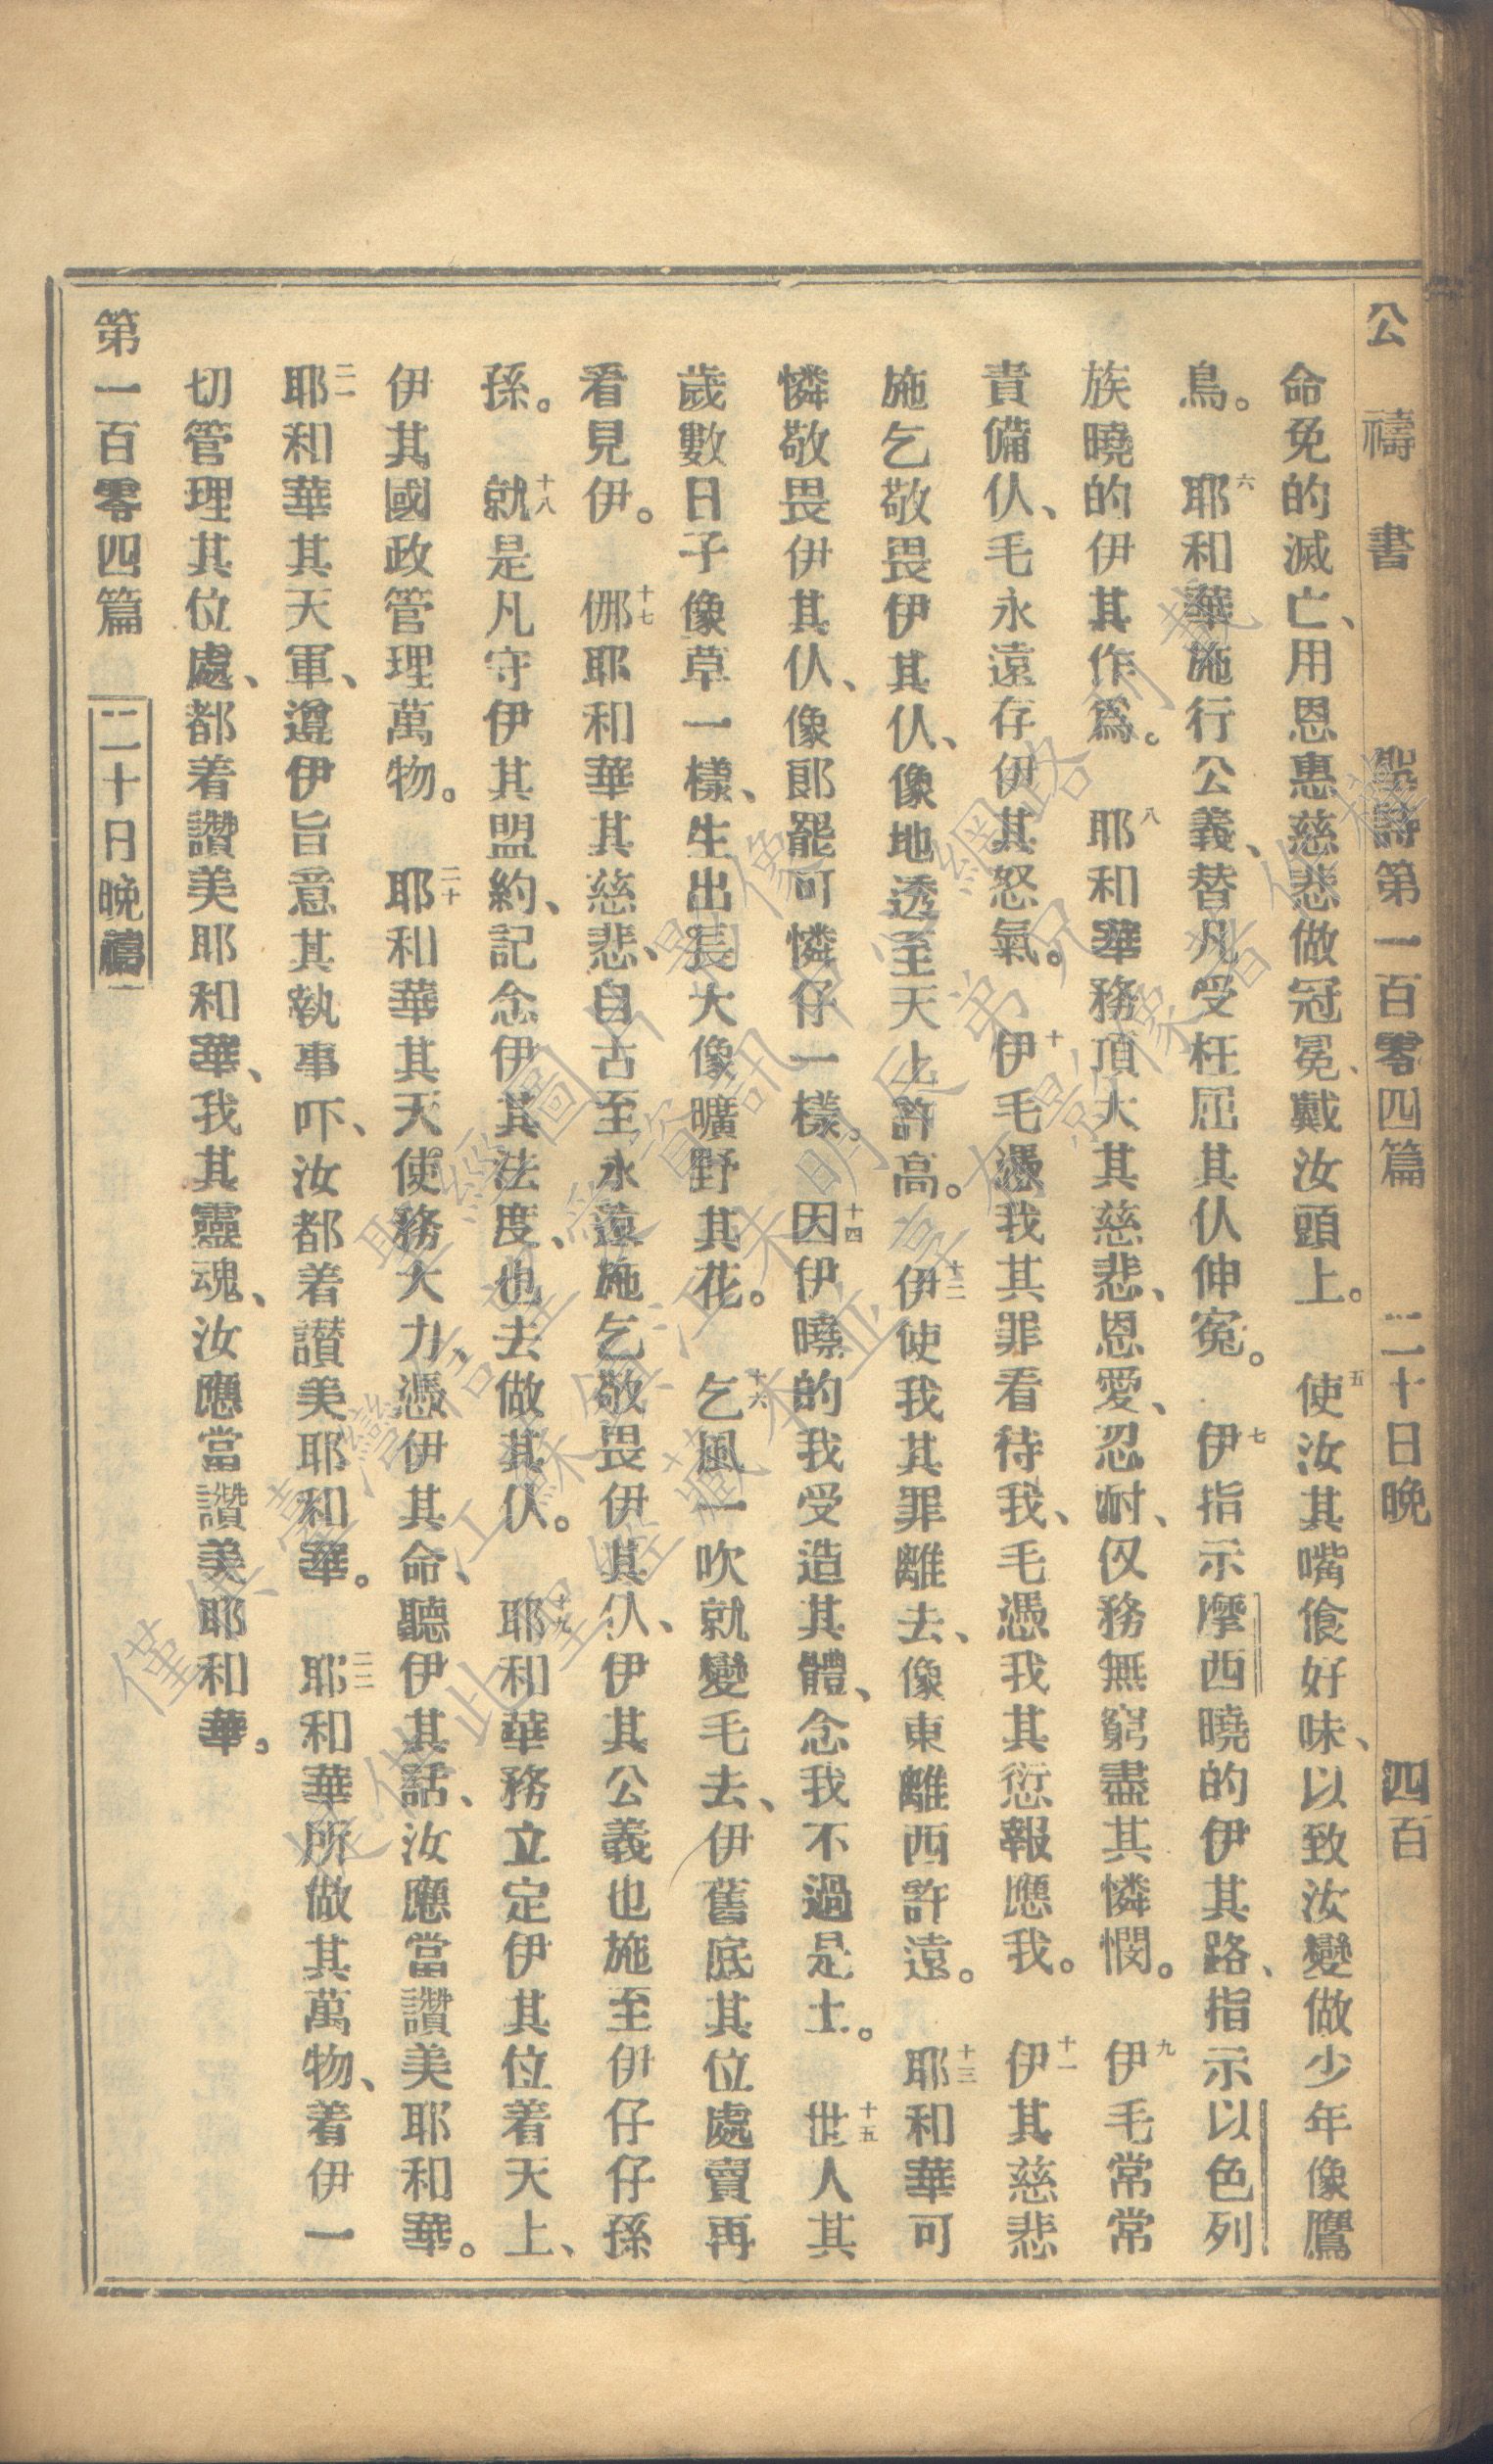 公禱書 聖詩第一百零四篇 二十日晚 四百
命免的滅亡、用恩惠慈悲做冠冕、戴汝頭上。五使汝其嘴飡好味、以致汝變做少年像鷹
鳥。六耶和華施行公義、替凡受枉屈其仈伸寃。七伊指示摩西曉的伊其路、指示以色列
族曉的伊其作爲。八耶和華務頂大其慈悲、恩愛、忍耐、仅務無窮盡其憐憫。九伊毛常常
責備仈、毛永遠存伊其怒氣。十伊毛憑我其罪看待我、毛憑我其愆報應我。十一伊其慈悲
施乞敬畏伊其仈、像地透至天上許高。十二伊使我其罪離去、像東離西許遠。十三耶和華可
憐敬畏伊其仈、像郎罷可憐仔一樣。十四因伊曉的我受造其體、念我不過是土。十五世人其
歲數日子像草一樣、生出長大像曠野其花。十六乞風一吹就變毛去、伊舊底其位處賣再
看見伊。十七倻耶和華其慈悲、自古至永遠施乞敬畏伊其仈、伊其公義也施至伊仔仔孫
孫。十八就是凡守伊其盟約、記念伊其法度、也去做其仈。十九耶和華務立定伊其位着天上、
伊其國政管理萬物。二十耶和華其天使務大力、憑伊其命、聽伊其話、汝應當讚美耶和華。
二一耶和華其天軍、遵伊旨意其執事吓、汝都着讚美耶和華。二二耶和華所做其萬物、着伊一
切管理其位處、都着讚美耶和華、我其靈魂、汝應當讚美耶和華。
第一百零四篇 二十日晚禱